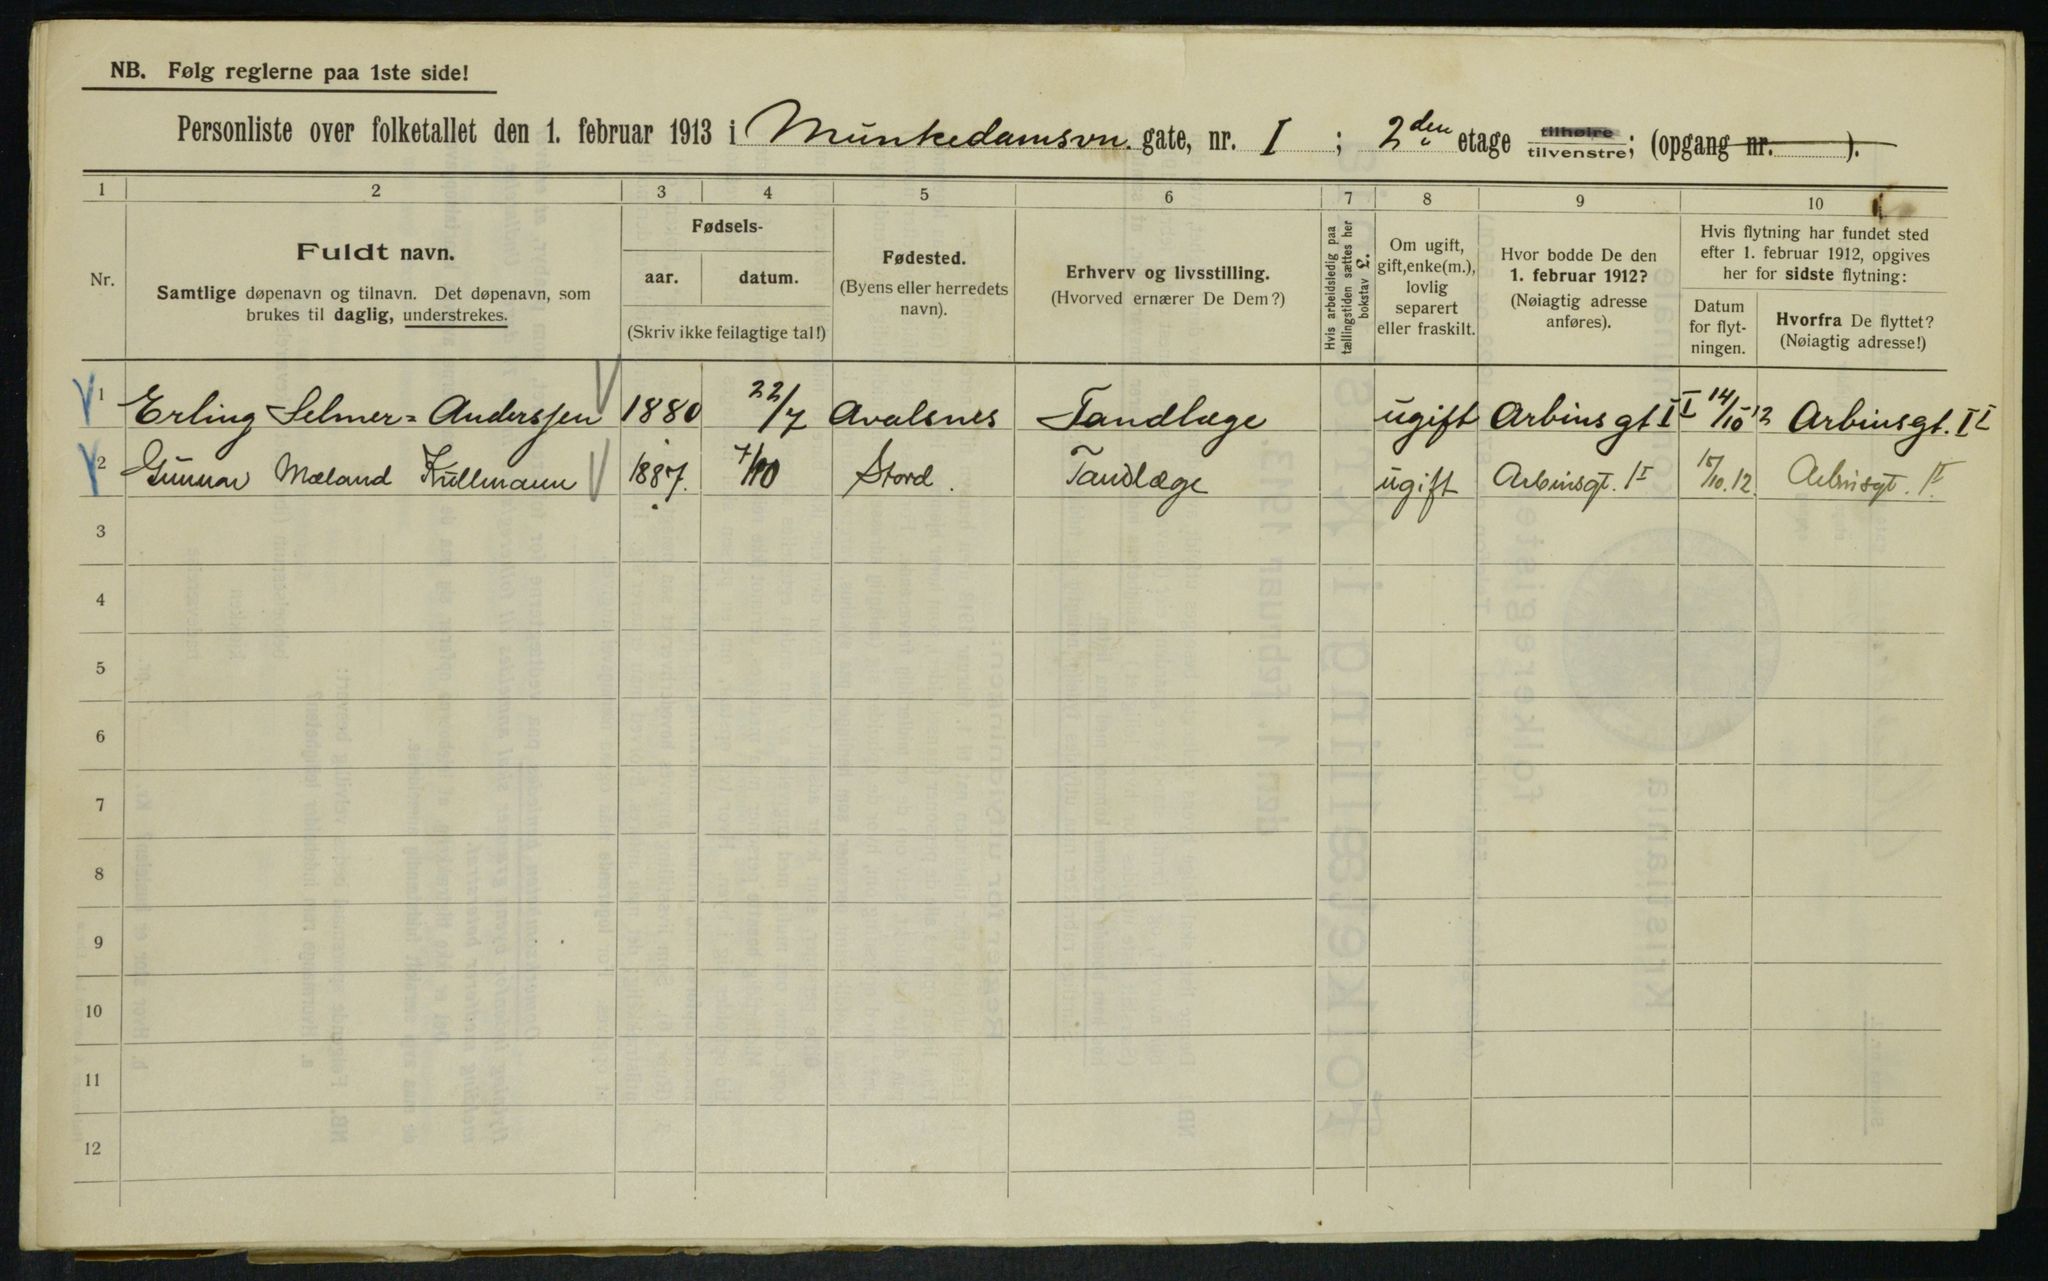 NB. Følg reglerne paa 1ste side!
Personliste over folketallet den 1. februar 1913 i Munkedamsvn. gate, nr. I ; 2den etage tilhøire tilvenstre; (opgang nr. ).
1 2 3 4 5 6 7 8 9 10
Nr.
Fuldt navn.
Samtlige døpenavn og tilnavn. Det døpenavn, som
brukes til daglig, understrekes.
Fødsels-
aar. datum.
(Skriv ikke feilagtige tal!)
Fødested.
(Byens eller herredets
navn).
Erhverv og livsstilling.
(Hvorved ernærer De Dem?)
Hvis arbeidsledig paa
tællingstiden sættes her
bokstav L.
Om ugift,
gift, enke(m.),
lovlig
separert
eller fraskilt.
Hvor bodde De den
1. februar 1912?
(Nøiagtig adresse
anføres).
Hvis flytning har fundet sted
efter 1. februar 1912, opgives
her for sidste flytning:
Datum
for flyt-
ningen.
Hvorfra De flyttet?
(Nøiagtig adresse!)
1 Erling Selmer=Anderssen 1880 22/7 Avalsnes Tandlæge ugift Arbinsgt II 14/10 12 Arbinsgt. II
2 Gunnar Mæland Kullmann 1887. 7/10 Stord. Tandlæge ugift Arbinsgt. 1I /10.12. Arbinsgt. 1I.
3
4
5
6
7
8
9
10
11
12